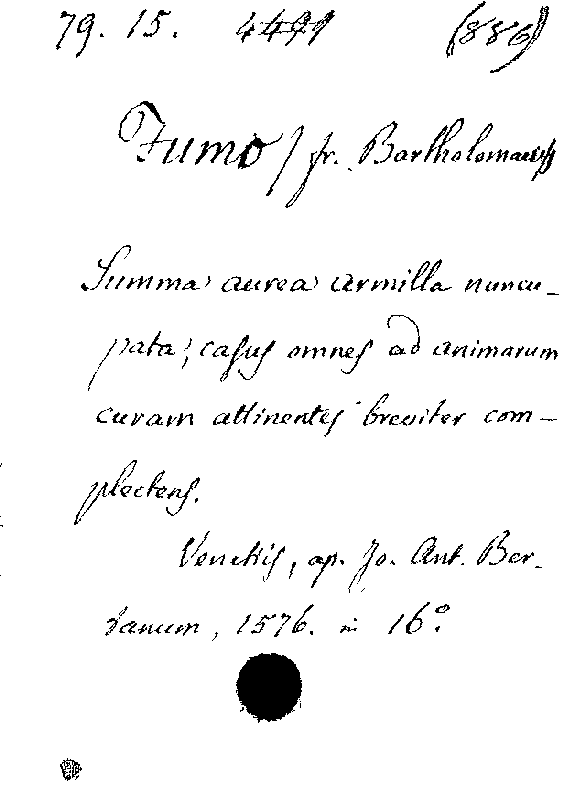 79. 15. 4491 (886)
Fumo / fr. Bartholomaeus
Summa aurea armilla nuncu-
pata, casus omnes ad animarum
curam attinentes breviter com-
plectens.
Venetiis, ap. Jo. Ant. Ber-
tanum, 1576. in 16º.